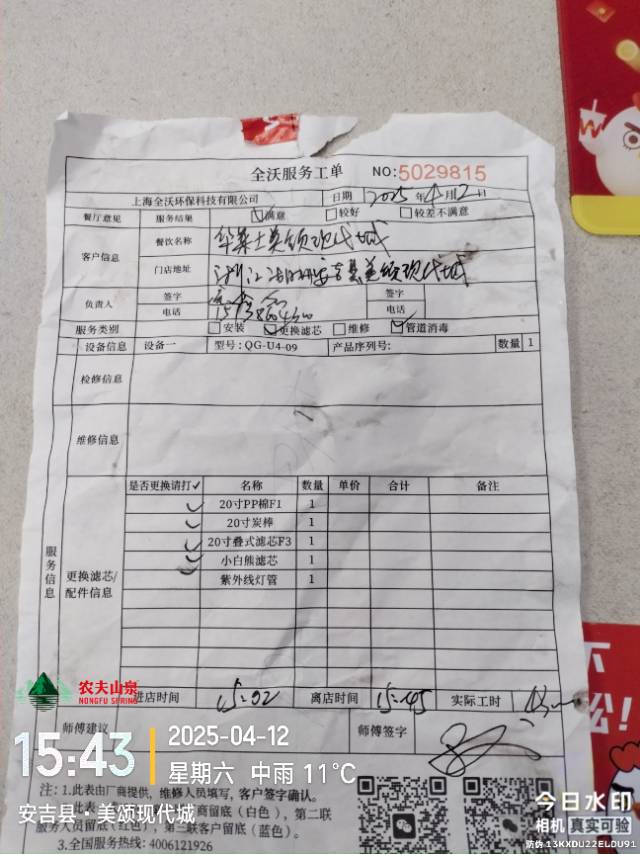 全沃服务工单 NO:5029815
上海全沃环保科技有限公司 日期 2025年4月12日
餐厅意见 服务结果 满意 较好 较差不满意
客户信息 餐饮名称 华莱士美颂现代城
门店地址 浙江湖州安吉县美颂现代城
负责人 签字 签字
电话 电话
服务类别 安装 更换滤芯 维修 管道消毒
设备信息 设备一 型号: QG-U4-09 产品序列号: 数量 1
检修信息
维修信息
服务信息
更换滤芯/配件信息
是否更换请打✓ 名称 数量 单价 合计 备注
✓ 20寸PP棉F1 1
✓ 20寸炭棒 1
✓ 20寸叠式滤芯F3 1
✓ 小白熊滤芯 1
✓ 紫外线灯管 1
进店时间 15:02 离店时间 15:45 实际工时
师傅建议 师傅签字
注: 1.此表由厂商提供，维修人员填写，客户签字确认。
商留底（白色）、第二联
服务人员留底（红色）、第三联客户留底（蓝色）。
3.全国服务热线: 4006121926
农夫山泉
NONGFU SPRING
15:43
2025-04-12
星期六 中雨 11°C
安吉县·美颂现代城
今日水印
相机 真实可验
防伪 13KXDU22ELDU91